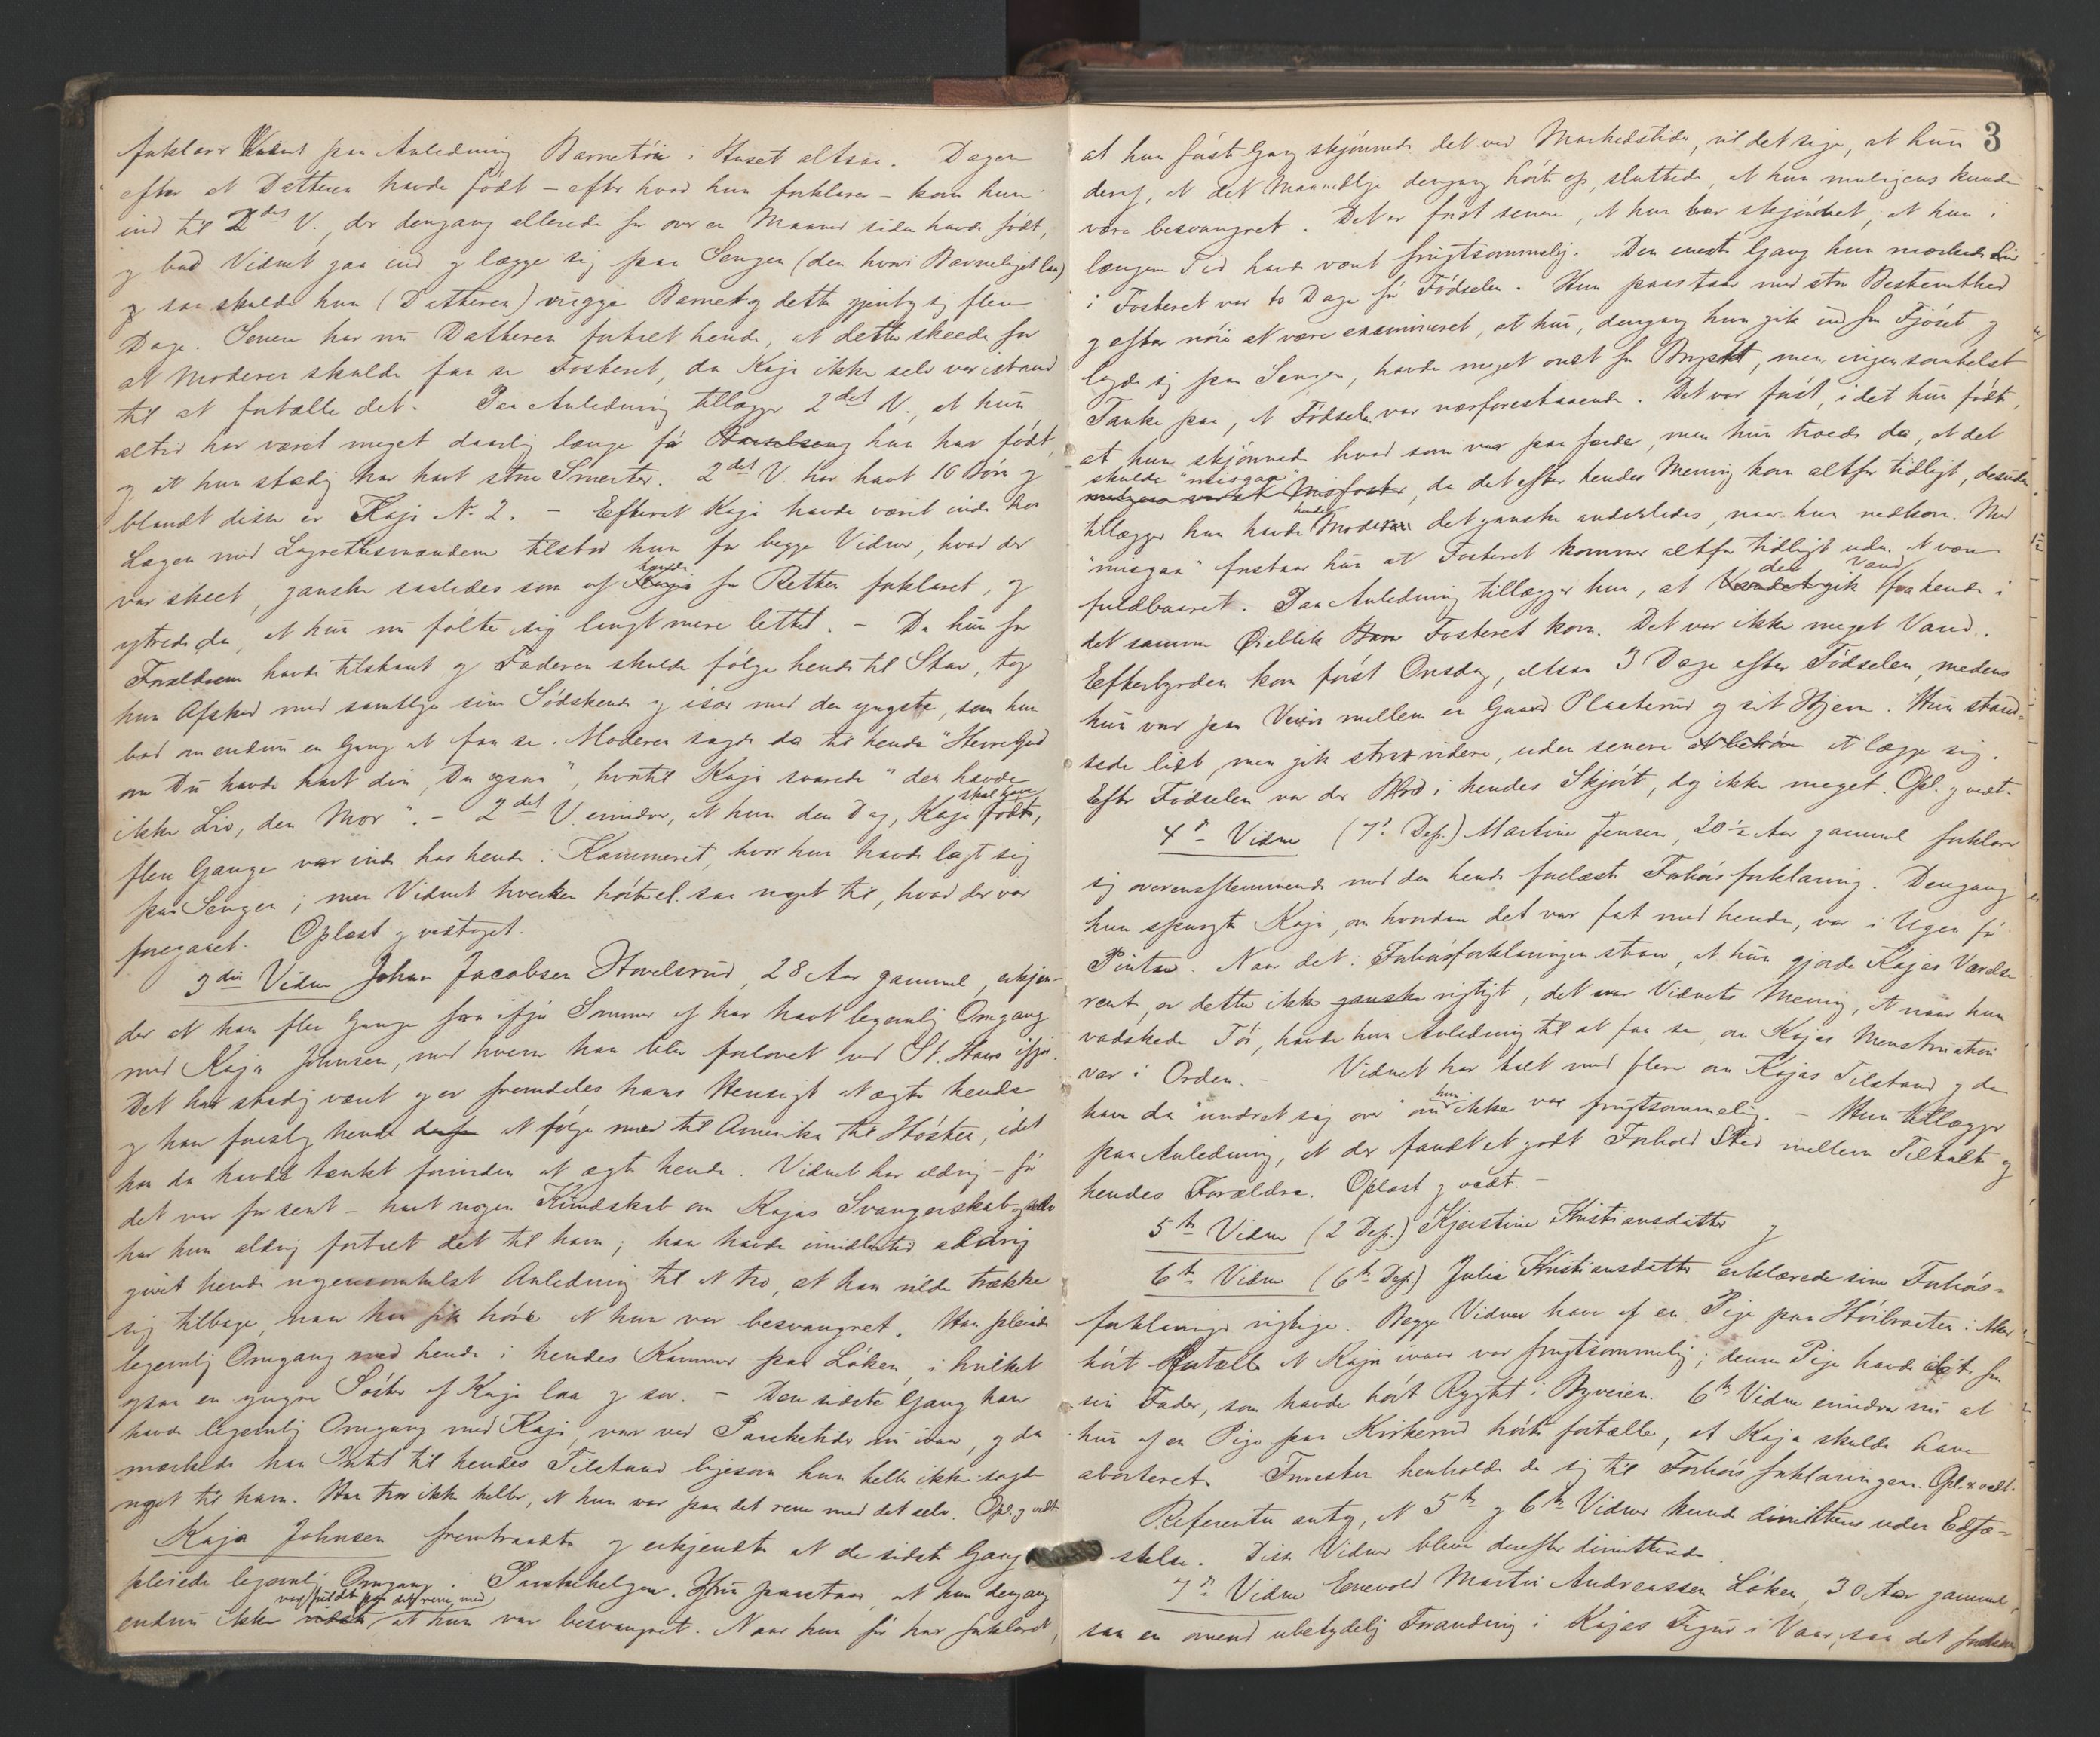 forklarer Vidnet paa Anledning Barnetøi i Huset altsaa. Dagen
efter at Datteren havde født – efter hvad hun forklarer – kom hun
ind til 2det V., der dengang allerede for over en Maaned siden havde født,
og bad Vidnet gaa ind og lægge sig paa Sengen (den hvori Barneliget laa)
og saa skulde hun (Datteren) vugge Barnet og dette gjentog sig flere
Dage. Senere har nu Datteren fortalt hende, at dette skeede for
at Moderen skulde faa se Fosteret, da Kaja ikke selv var istand
til at fortælle det. Paa Anledning tillægger 2det V., at hun
altid har været meget daarlig længe før hun har født,
og at hun stadig har havt store Smerter. 2det V. har havt 10 Børn og
blandt disse er Kaja No. 2. – Efterat Kaja havde været inde hos
Lægen med Lagrettesmændene tilstod hun for begge Vidner, hvad der
var skeet, ganske saaledes som af hende for Retten forklaret, og
ytrede da, at hun nu følte sig langt mere lettet. – Da hun for
Forældrene havde tilstaaet og Faderen skulde følge hende til Skar, tog
hun Afsked med samtlige sine Sødskende og især med den yngste, som hun
bad om endnu en Gang at faa se. Moderen sagde da til hende "Herregud
om Du havde havt din, Du ogsaa", hvortil Kaja svarede "den havde
ikke Liv, den Mor". – 2det V. erindrer, at hun den Dag, Kaja skal have født,
flere Gange var inde hos hende i Kammeret, hvor hun havde lagt sig
paa Sengen; men Vidnet hverken hørte el. saa noget til, hvad der var
foregaaet. Oplæst og vedtaget.
3die Vidne Johan Jacobsen Hovelsrud, 28 Aar gammel, erkjen-
der at han flere Gange fra ifjor Sommer af har havt legemlig Omgang
med Kaja Johnsen, med hvem han blev forlovet ved St. Hans ifjor.
Det har stadig været og er fremdeles hans Hensigt at ægte hende
og han foreslog hende at følge med til Amerika til Høsten, idet
han da havde tænkt forinden at ægte hende. Vidnet har aldrig – før
det var for sent – havt nogen Kundskab om Kajas Svangerskab og selv
har hun aldrig fortalt det til ham; han havde imidlertid aldrig
givet hende nogensomhelst Anledning til at tro, at han vilde trække
sig tilbage, naar han fik høre at hun var besvangret. Han pleiede
legemlig Omgang med hende i hendes Kammer paa Løken, i hvilket
ogsaa en yngre Søster af Kaja laa og sov. – Den sidste Gang han
havde legemlig Omgang med Kaja, var ved Paasketider nu ivaar, og da
mærkede han Intet til hendes Tilstand ligesom hun heller ikke sagde
noget til ham. Han tror ikke heller, at hun var paa det rene med det selv. Opl. og vedt.
Kaja Johnsen fremtraadte og erkjendte at de sidste Gang
pleiede legemlig Omgang i Paaskehelgen. Hun paastaar, at hun dengang
endnu ikke var fuldt paa det rene med at hun var besvangret. Naar hun før har forklaret,
3
at hun først Gang skjønnede det ved Markedstider, vil det sige, at hun
deraf, at det Maanedlige dengang hørte op, sluttede, at hun muligens kunde
være besvangret. Det er først senere, at hun har skjønnet, at hun i
længere Tid havde været frugtsommelig. Den eneste Gang hun mærkede Liv
i Fosteret var to Dage før Fødselen. Hun paastaar med stor Bestemthed
og efter nøie at være examineret, at hun, dengang hun gik ind fra Fjøset og
lagde sig paa Sengen, havde meget ondt for Brystet, men ingensomhelst
Tanke paa, at Fødselen var nærforestaaende. Det var først, idet hun fødte,
at hun skjønnede hvad som var paa færde, men hun troede da, at det
skulde "misgaa", da det efter hendes Mening kom altfor tidligt, desuden
tillægger hun havde hendes Moder det ganske anderledes, naar hun nedkom. Med
"misgaa" forstaar hun at Fosteret kommer altfor tidligt uden at være
fuldbaaret. Paa Anledning tillægger hun, at der gik Vand fra hende i
det samme Øieblik Fosteret kom. Det var ikke meget Vand.
Efterbyrden kom først Onsdag, altsaa 3 Dage efter Fødselen, medens
hun var paa Veien mellem en Gaard Plasterud og sit Hjem. Hun stand-
sede lidt, men gik strax videre, uden senere at lægge sig.
Efter Fødselen var der Blod i hendes Skjørt, dog ikke meget. Opl. og vedt.
4de Vidne (7de Dep.) Martine Jensen, 20½ Aar gammel forklarer
sig overensstemmende med den hende forelæste Forhørsforklaring. Dengang
hun spurgte Kaja, om hvordan det var fat med hende, var i Ugen før
Pintse. Naar det i Forhørsforklaringen staar, at hun gjorde Kajas Værelse
rent, er dette ikke ganske rigtigt, det var Vidnets Mening, at naar hun
vadskede Tøi, havde hun Anledning til at faa se, om Kajas Menstruation
var i Orden. – Vidnet har talt med flere om Kajas Tilstand og de
have da "undret sig over" om hun ikke var frugtsommelig. – Hun tillægger
paa Anledning, at der fandt et godt Forhold Sted mellem Tiltalte og
hendes Forældre. Oplæst og vedt. –
5te Vidne (2 Dep.) Kjerstine Kristiansdatter og
6te Vidne (6te Dep.) Julie Kristiansdatter erklærede sine Forhørs-
forklaringer rigtige. Begge Vidner have af en Pige paa Høibraaten i Aker
hørt fortælle at Kaja ivaar var frugtsommelig; denne Pige havde det fra
sin Fader, som havde hørt Rygtet i Byveien. 6te Vidne erindrer nu at
hun af en Pige paa Kirkerud hørte fortælle, at Kaja skulde have
aborteret. Forresten henholder de sig til Forhørsforklaringen. Opl. & vedt.
Referenten antog, at 5te og 6te Vidner kunde dimitteres uden Edfæ-
stelse. Disse Vidner bleve derefter dimitterede.
7de Vidne Enevold Martin Andreassen Løken, 30 Aar gammel,
saa en omend ubetydelig Forandring i Kajas Figur i Vaar, saa det